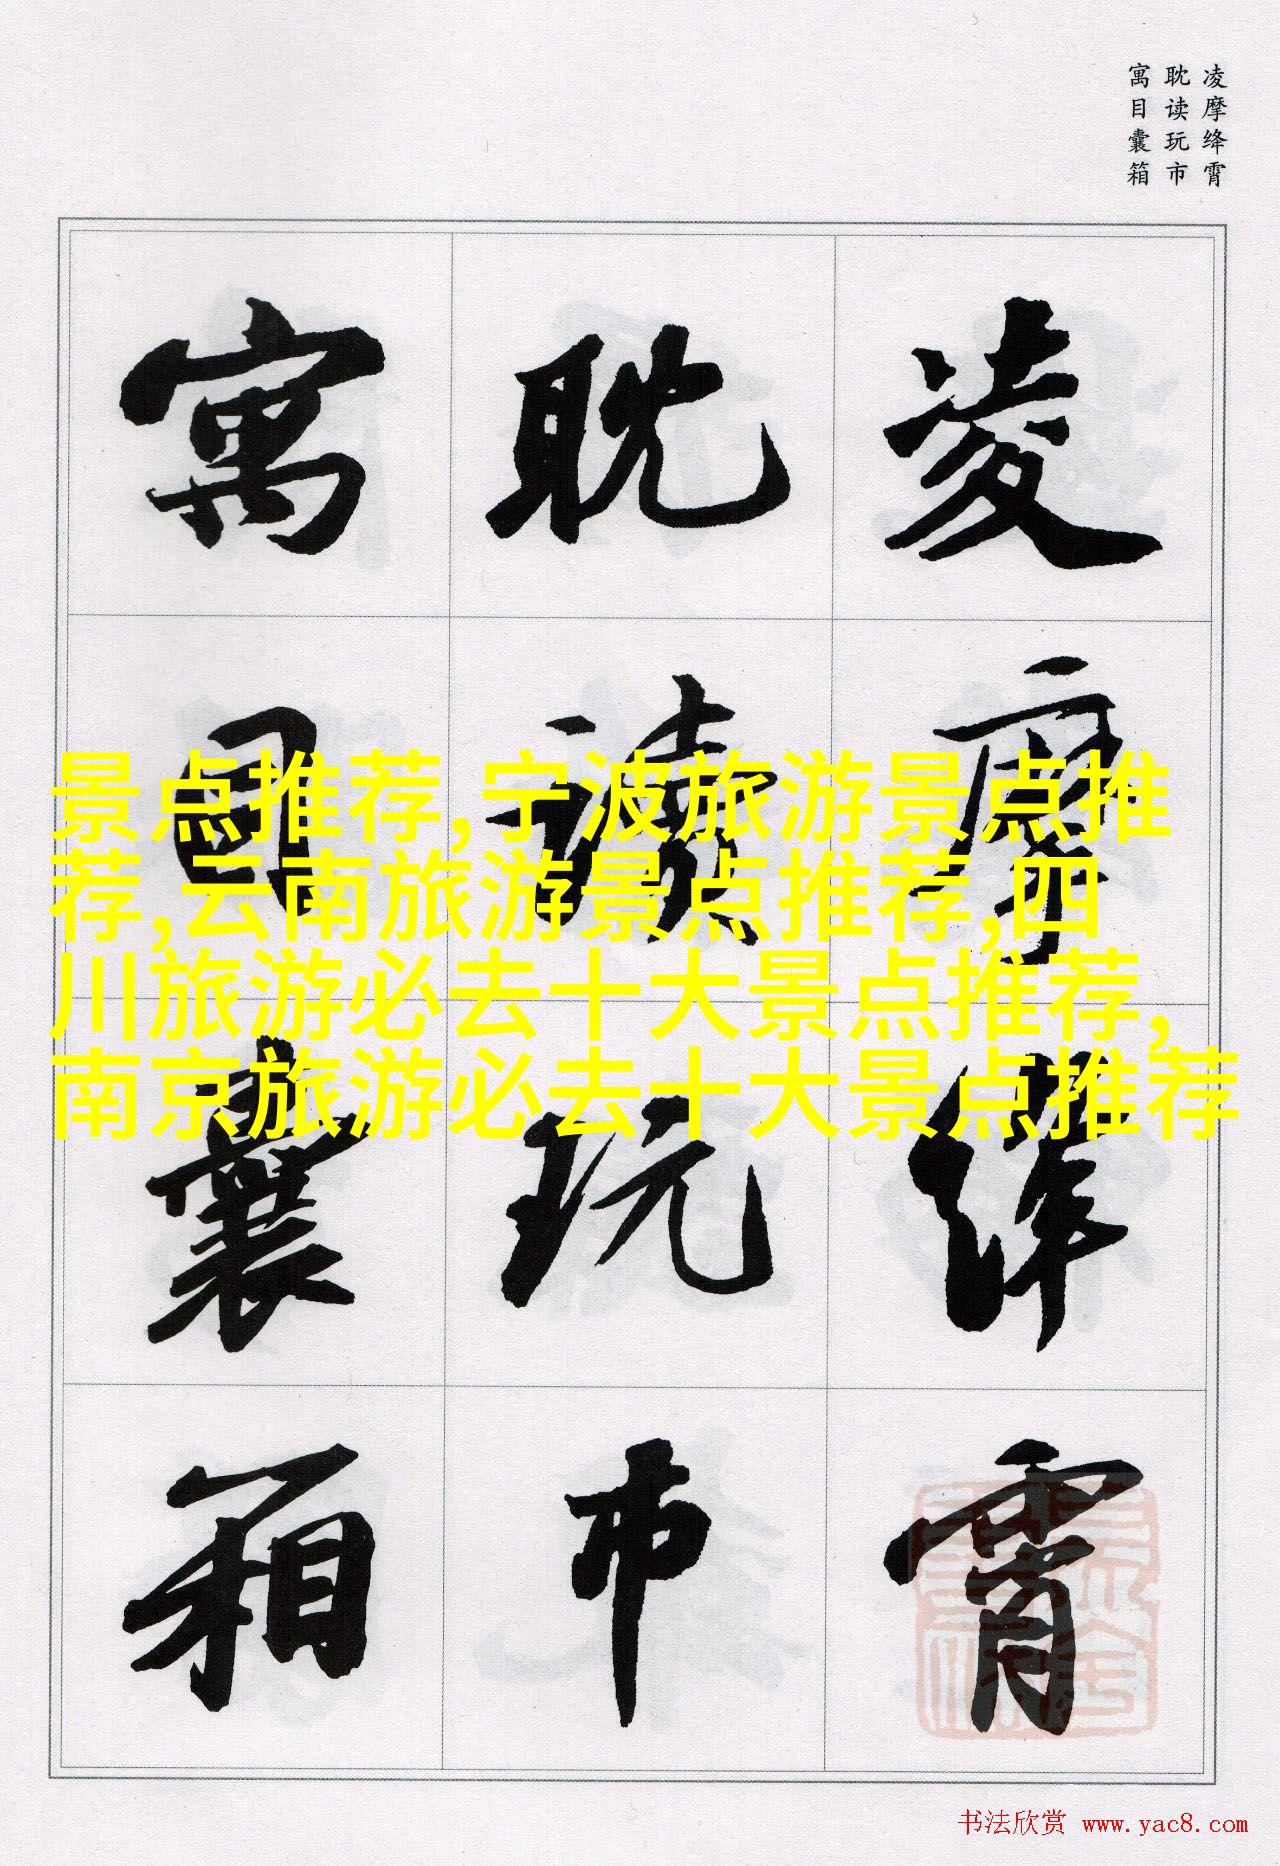 凌摩绛霄
耽读玩市
寓目囊箱
凌摩绛霄
耽读玩市
寓目囊箱
景点推荐,宁波旅游景点推
荐,云南旅游景点推荐,四
川旅游必去十大景点推荐,
南京旅游必去十大景点推荐
书法欣赏 www.yac8.com